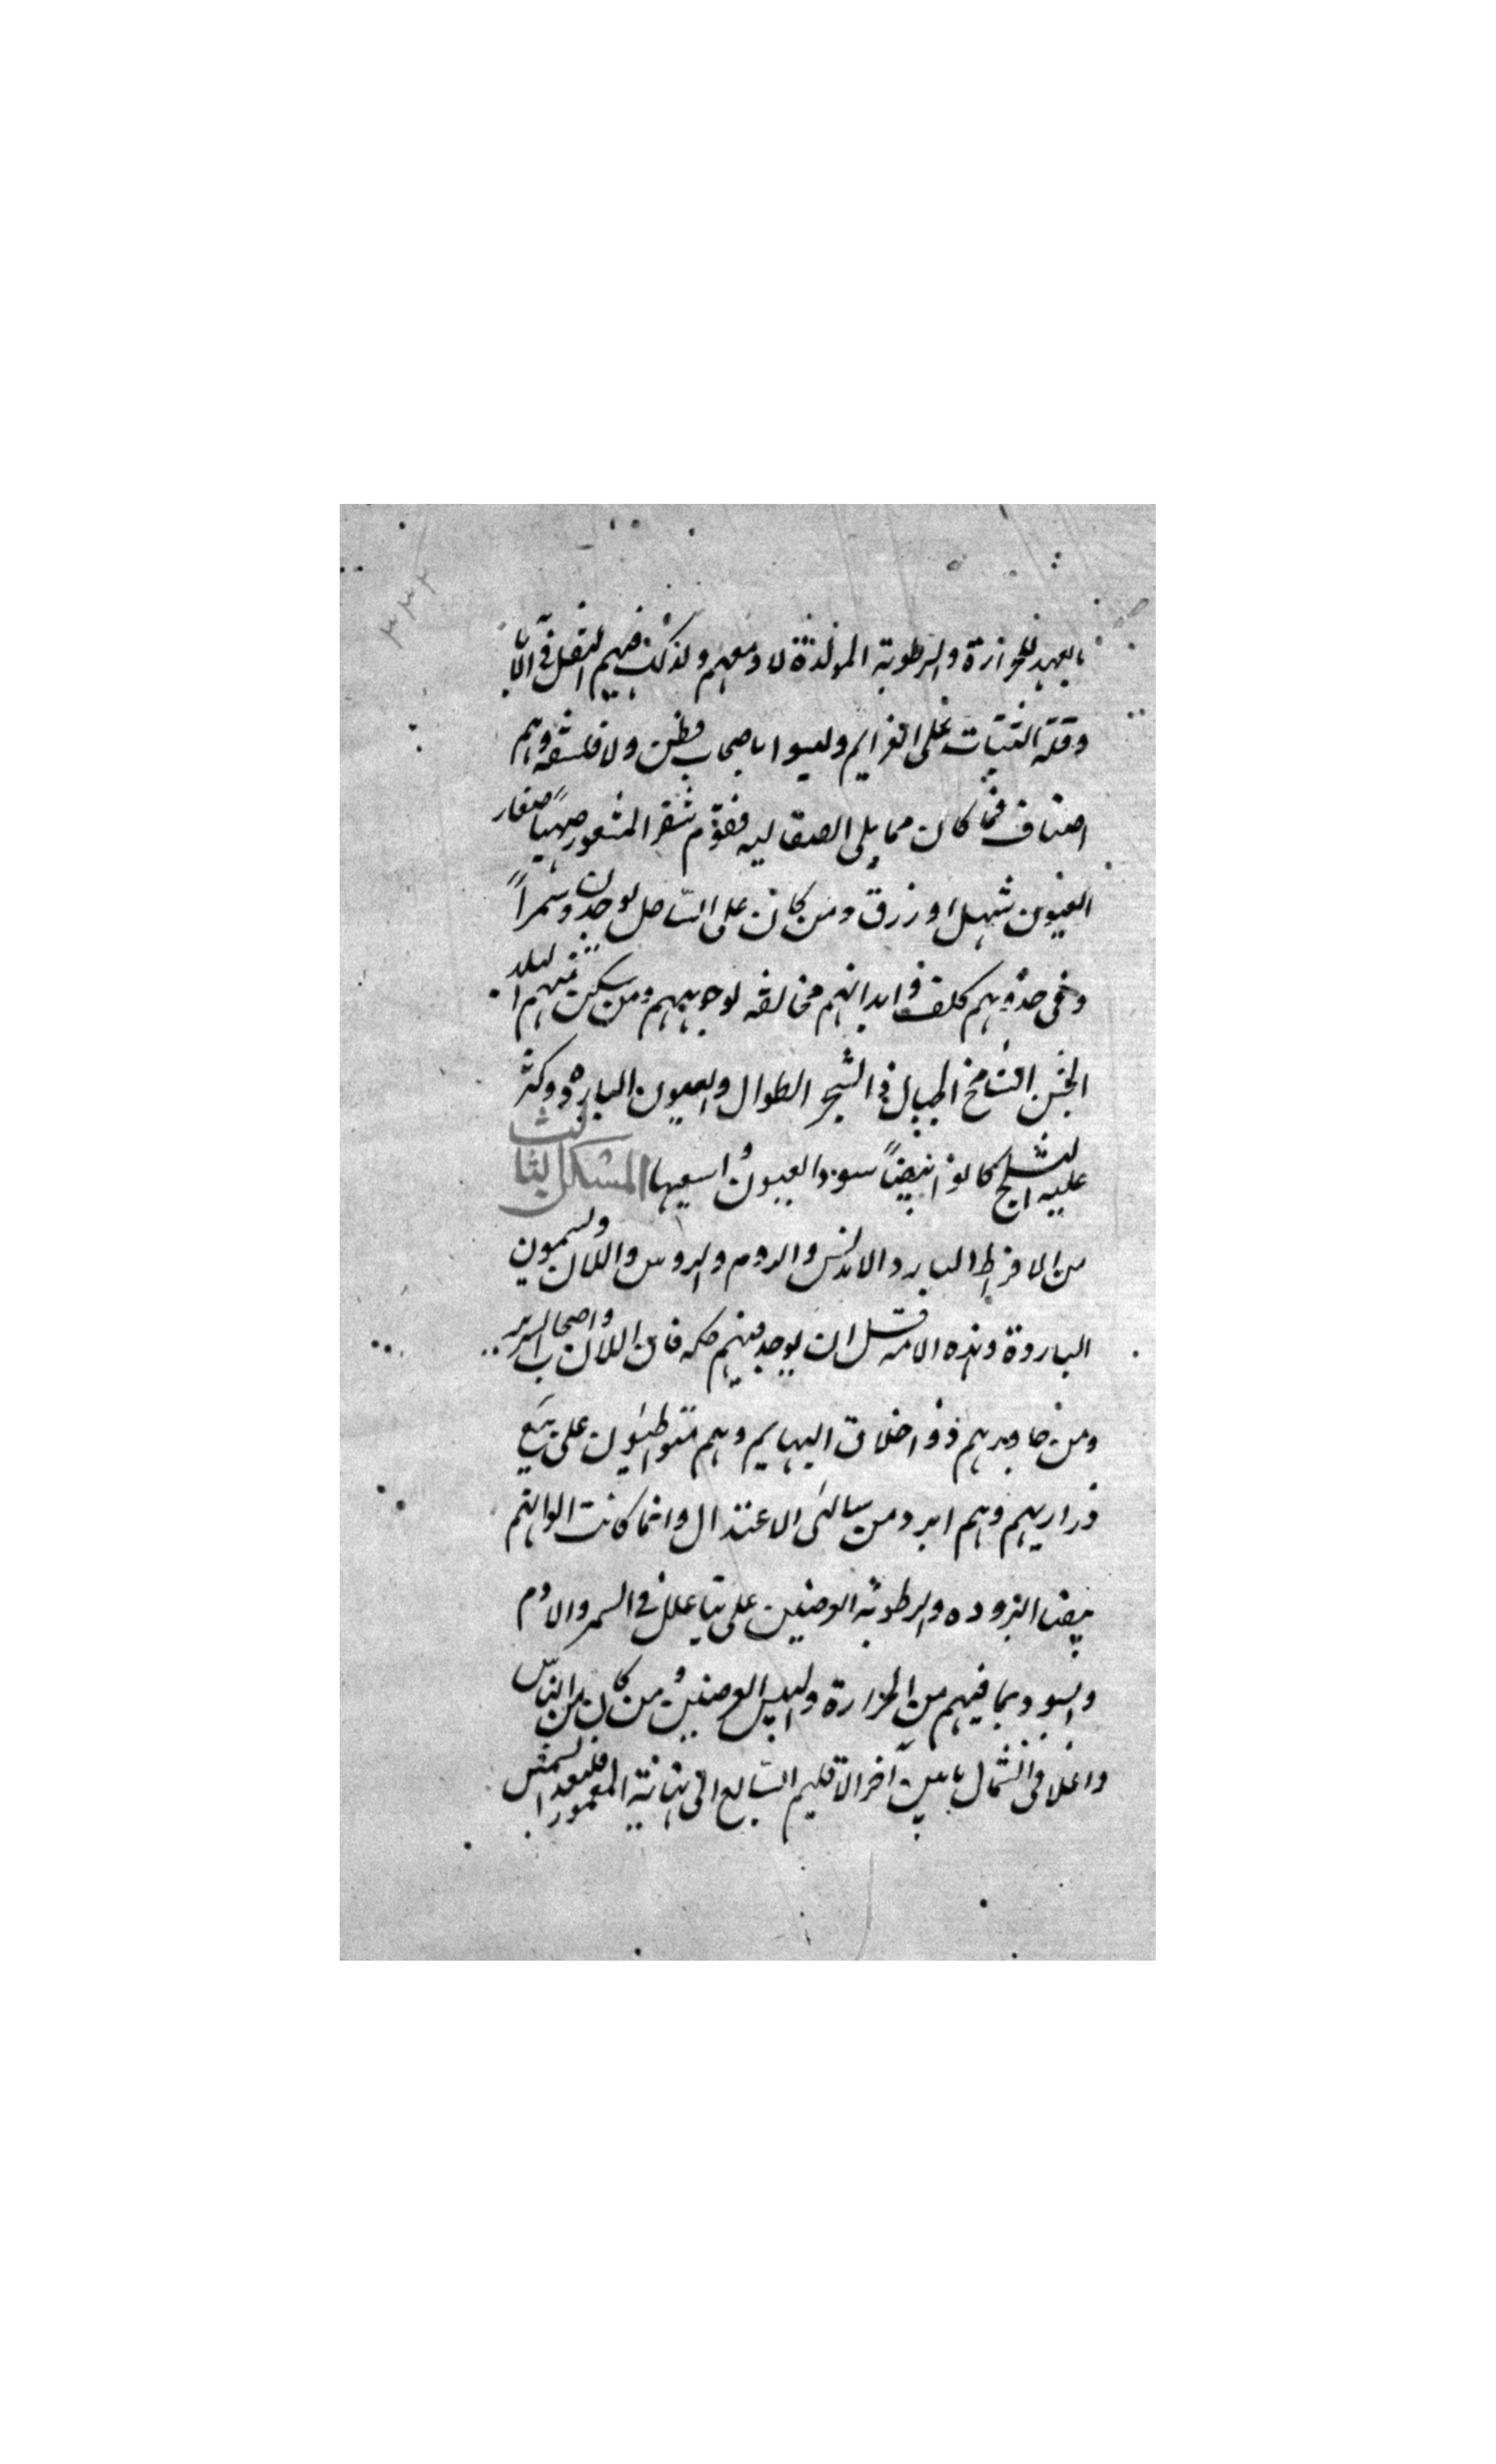 بالعهد للحرارة والرطوبة المولدة لادمغتهم ولذلك فيهم التقل في الآيا
وقلة الثبات على العزايم وليسوا باصحاب فطن ولا فلسفة وهم
اصناف فما كان مما يلى الصقالبه فقوم شقر الشعور صهبا صغار
العيون شهل او زرق ومن كان على الساحل يوجدون سمرا
وفى خدودهم كلف وابدانهم مخالفه لوجوههم ومن سكن منهم البلد
الخشن الشامخ الجبال ذى الشجر الطوال والعيون البارده وكثر
عليه الثلج كانوا ابيضا سود العيون واسعيها الشكل الثالث
من الافراط البارد الاندلس والروم والروس واللان ويسمون
الباردة وهذه الامة قل ان يوجد فيهم حكمه فان اللان واصحاب السرير
ومن جاورهم ذو اخلاق البهايم وهم متواطئون على بيع
ذراريهم وهم ابرد من سالكى الاعتدال وانما كانت الوانهم
بيضا البروده والرطوبة العرضين على ما علل في السمر والادم
والسود بما فيهم من الحرارة واليبس العرضين ومن كان من الناس
واغلا فى الشمال ما بين آخر الاقليم السابع الى نهاية المعمور فلبعد الشمس